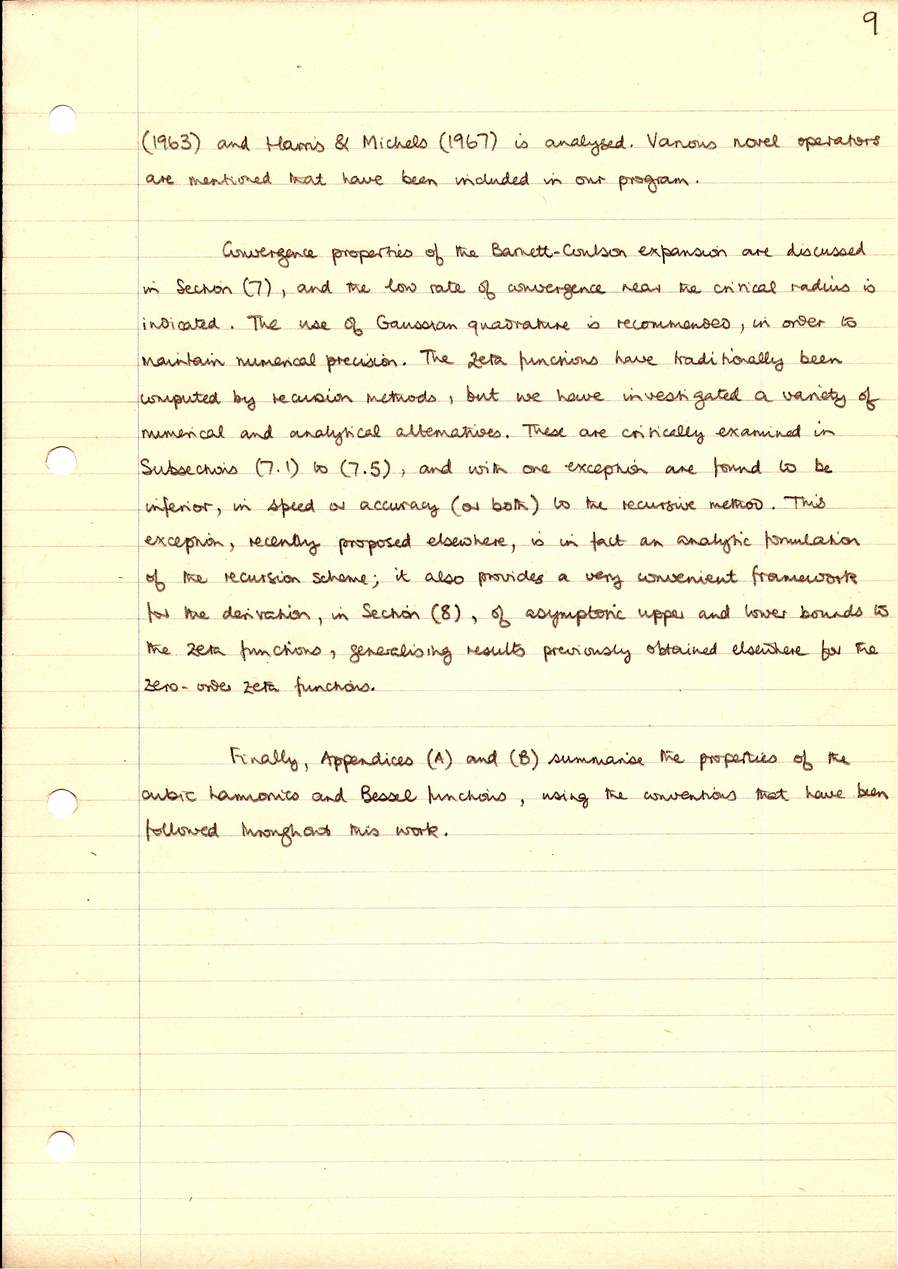 9
(1963) and Harris & Michels (1967) is analysed. Various novel operators
are mentioned that have been included in our program.
Convergence properties of the Barnett-Coulson expansion are discussed
in Section (7), and the low rate of convergence near the critical radius is
indicated. The use of Gaussian quadrature is recommended, in order to
maintain numerical precision. The zeta functions have traditionally been
computed by recursion methods, but we have investigated a variety of
numerical and analytical alternatives. These are critically examined in
Subsections (7.1) to (7.5), and with one exception are found to be
inferior, in speed or accuracy (or both) to the recursive method. This
exception, recently proposed elsewhere, is in fact an analytic formulation
of the recursion scheme; it also provides a very convenient framework
for the derivation, in Section (8), of asymptotic upper and lower bounds to
the zeta functions, generalising results previously obtained elsewhere for the
zero-order zeta functions.
Finally, Appendices (A) and (B) summarise the properties of the
cubic harmonics and Bessel functions, using the conventions that have been
followed throughout this work.